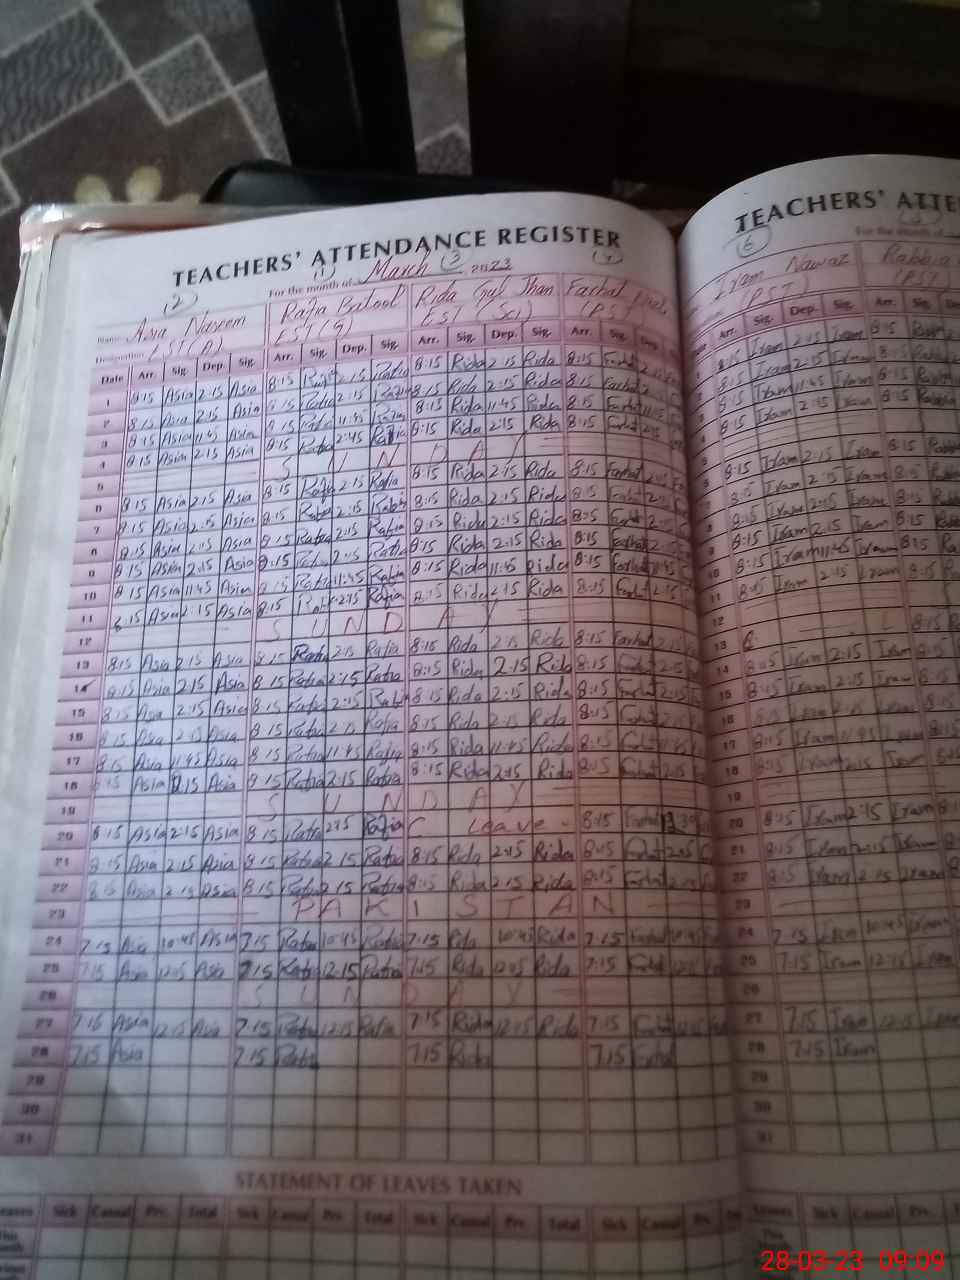 TEACHERS' ATTENDANCE REGISTER
(1) (3) (4)
(2) For the month of March 2023
Name Asia Naseem Rafia Batool Rida Gul Jhan Farhat
Designation EST(A) EST(G) EST (Sci) (PST)
Date Arr. Sig. Dep. Sig. Arr. Sig. Dep. Sig. Arr. Sig. Dep. Sig. Arr. Sig. Dep.
1 8:15 Asia 2:15 Asia 8:15 2:15 Rafia 8:15 Rida 2:15 Rida 8:15 Farhat
2 8:15 Asia 2:15 Asia 8:15 Rafia 2:15 Rafia 8:15 Rida 2:15 Rida 8:15 Farhat
3 8:15 Asia 11:45 Asia 8:15 Rafia 11:45 Rafia 8:15 Rida 11:45 Rida 8:15 Farhat 11:45
4 8:15 Asia 2:15 Asia 8:15 Rafia 2:45 Rafia 8:15 Rida 2:15 Rida 8:15 Farhat 2:15
5 S U N D A Y
6 8:15 Asia 2:15 Asia 8:15 Rafia 2:15 Rafia 8:15 Rida 2:15 Rida 8:15 Farhat 2:15
7 8:15 Asia 2:15 Asia 8:15 Rafia 2:15 Rafia 8:15 Rida 2:15 Rida 8:15 Farhat 2:15
8 8:15 Asia 2:15 Asia 8:15 Rafia 2:15 Rafia 8:15 Rida 2:15 Rida 8:15 Farhat 2:15
9 8:15 Asia 2:15 Asia 8:15 Rafia 2:15 Rafia 8:15 Rida 2:15 Rida 8:15 Farhat 2:15
10 8:15 Asia 11:45 Asia 8:15 Rafia 11:45 Rafia 8:15 Rida 11:45 Rida 8:15 Farhat 11:45
11 8:15 Asia 2:15 Asia 8:15 2:15 Rafia 8:15 Rida 2:15 Rida 8:15 Farhat 2:15
12 S U N D A Y
13 8:15 Asia 2:15 Asia 8:15 Rafia 2:15 Rafia 8:15 Rida 2:15 Rida 8:15 Farhat 2:15
14 8:15 Asia 2:15 Asia 8:15 Rafia 2:15 Rafia 8:15 Rida 2:15 Rida 8:15 Farhat 2:15
15 8:15 Asia 2:15 Asia 8:15 Rafia 2:15 8:15 Rida 2:15 Rida 8:15 Farhat 2:15
16 8:15 Asia 2:15 Asia 8:15 Rafia 2:15 Rafia 8:15 Rida 2:15 Rida 8:15 Farhat 2:15
17 8:15 Asia 11:45 Asia 8:15 Rafia 11:45 Rafia 8:15 Rida 11:45 Rida 8:15 Farhat 11:45
18 8:15 Asia 2:15 Asia 8:15 Rafia 2:15 Rafia 8:15 Rida 2:15 Rida 8:15 Farhat 2:15
19 S U N D A Y
20 8:15 Asia 2:15 Asia 8:15 Rafia 2:15 Rafia C Leave - 8:15 Farhat
21 8:15 Asia 2:15 Asia 8:15 Rafia 2:15 Rafia 8:15 Rida 2:15 Rida 8:15 Farhat 2:15
22 8:15 Asia 2:15 Asia 8:15 Rafia 2:15 Rafia 8:15 Rida 2:15 Rida 8:15 Farhat 2:15
23 P A K I S T A N
24 7:15 Asia 10:45 Asia 7:15 Rafia 10:45 Rafia 7:15 Rida 10:45 Rida 7:15 Farhat 10:45
25 7:15 Asia 12:15 Asia 7:15 Rafia 12:15 Rafia 7:15 Rida 12:15 Rida 7:15 Farhat 12:15
26 S U N D A Y
27 7:15 Asia 12:15 Asia 7:15 Rafia 12:15 Rafia 7:15 Rida 12:15 Rida 7:15 Farhat 12:15
28 7:15 Asia 7:15 Rafia 7:15 Rida 7:15 Farhat
29
30
31
STATEMENT OF LEAVES TAKEN
Leaves Sick Casual Prv. Total Sick Casual Prv. Total Sick Casual Prv. Total Sick Casual Prv.
This
TEACHERS' ATTE
(6) For the month of
Iram Nawaz Rabbia
(PST) (PST)
Arr. Sig. Dep. Sig. Arr. Sig.
8:15 Iram 2:15 Iram 8:15
8:15 Iram 2:15 Iram 8:15
8:15 Iram 11:45 Iram 8:15
8:15 Iram 2:15 Iram 8:15
8:15 Iram 2:15 Iram 8:15
8:15 Iram 2:15 Iram 8:15
8:15 Iram 2:15 Iram 8:15
8:15 Iram 2:15 Iram 8:15
10 8:15 Iram 11:45 Iram 8:15
11 8:15 Iram 2:15 Iram 8:15
12
13 8:15
14 8:15 Iram 2:15 Iram
15 8:15 Iram 2:15 Iram
16 8:15 Iram 2:15 Iram
17 8:15 Iram 11:45 Iram 8:15
18 8:15 Iram 2:15 Iram
19
20 8:15 Iram 2:15 Iram
21 8:15 Iram 2:15 Iram
22 8:15 Iram 2:15 Iram
23
24 7:15 Iram 10:45 Iram
25 7:15 Iram 12:15 Iram
26
27 7:15 Iram 12:15 Iram
28 7:15 Iram
29
30
31
Leaves Sick Casual Prv. Total
This
28-03-23 09:09